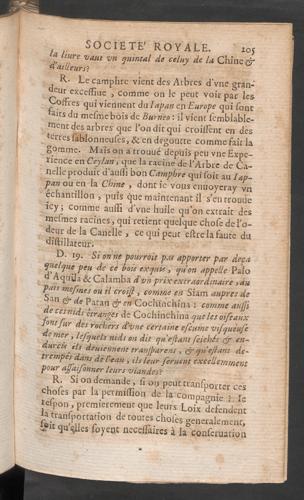 SOCIETE' ROYALE. 205
la liure vaut vn quintal de celuy de la Chine &
d'ailleurs?
R. Le camphre vient des Arbres d'vne gran-
deur excessiue, comme on le peut voir par les
Coffres qui viennent du Iapan en Europe qui sont
faits du mesme bois de Burneo: il vient semblable-
ment des arbres que l'on dit qui croissent en des
terres sablonneuses, & en degoutte comme fait la
gomme. Mais on a trouué depuis peu vne Expe-
rience en Ceylan, que la racine de l'Arbre de Ca-
nelle produit d'aussi bon Camphre qui soit au Iap-
pan ou en la Chine, dont ie vous enuoyeray vn
échantillon, puis que maintenant il s'en trouue
icy; comme aussi d'vne huile qu'on extrait des
mesmes racines, qui retient quelque chose de l'o-
deur de la Canelle, ce qui peut estre la faute du
distillateur.
D. 19. Si on ne pourroit pas apporter par deça
quelque peu de ce bois exquis, qu'on appelle Palo
d'Aquila & Calamba d'vn prix extraordinaire au
païs mesmes où il croist, comme en Siam aupres de
San & de Patan & en Cochinchina: comme aussi
de ces nids étranges de Cochinchina que les oiseaux
font sur des rochers d'vne certaine escume visqueuse
de mer, lesquels nids on dit qu'estans seichés & en-
durcis ils deuiennent transparens, & qu'estans de-
trempés dans de l'eau, ils leur seruent excellemment
pour assaisonner leurs viandes?
R. Si on demande, si on peut transporter ces
choses par la permission de la compagnie? Ie
respon, premierement que leurs Loix defendent
la transportation de toutes choses generalement,
soit qu'elles soyent necessaires à la conseruation